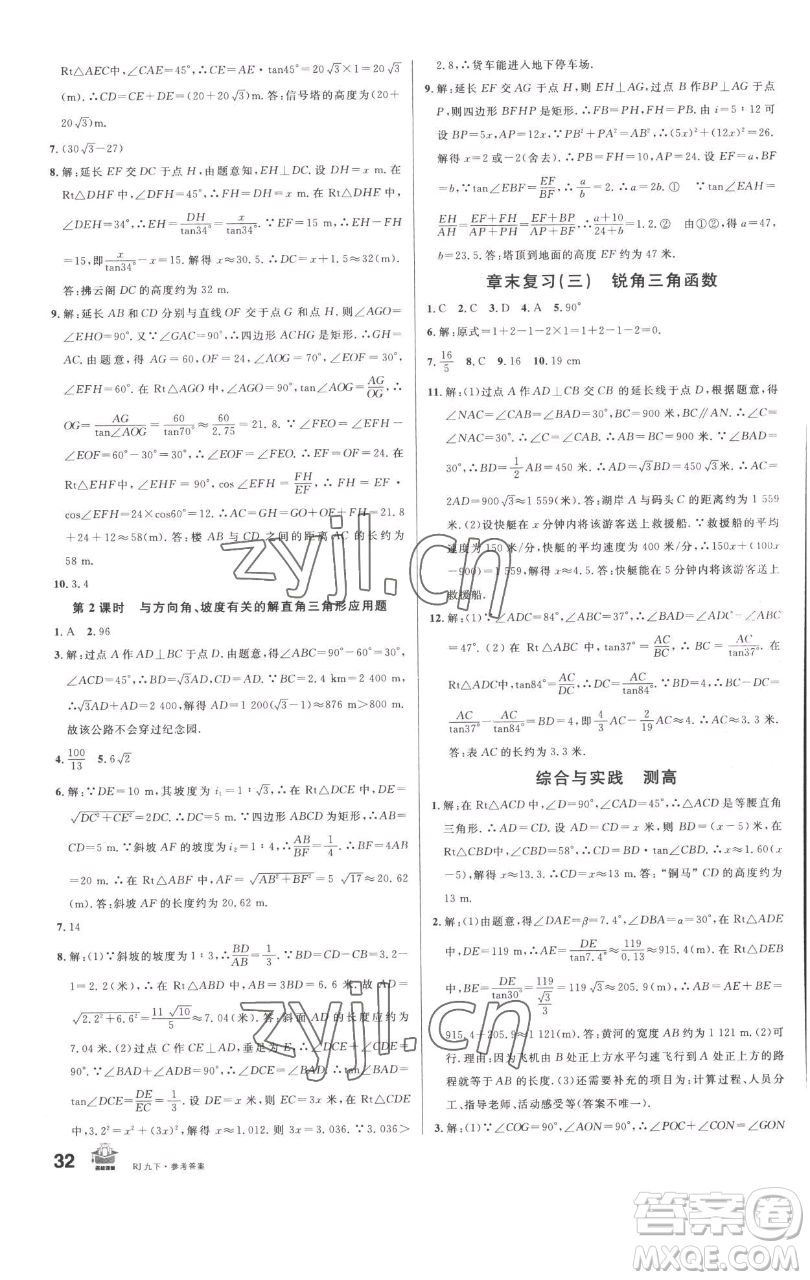 Rt△AEC中,∠CAE=45°,∴CE=AE·tan45°=20√3×1=20√3
(m).∴CD=CE+DE=(20+20√3)m.答:信号塔的高度为(20+
20√3)m.
7.(30√3-27)
8.解:延长EF交DC于点H,由题意知,EH⊥DC.设DH=x m.在
Rt△DHF中,∠DFH=45°,∴FH=DH=x m.在Rt△DHE中,
∠DEH=34°,∴EH=DH/tan34°=x/tan34°.∵EF=15 m,∴EH-FH
=15,即x/tan34°-x=15.解得x≈30.5.∴DC=DH+CH≈32(m).
答:拂云阁DC的高度约为32 m.
9.解:延长AB和CD分别与直线OF交于点G和H,则∠AGO=
∠EHO=90°.又∵∠GAC=90°,∴四边形ACHG是矩形.∴GH=
AC.由题意,得AG=60,OF=24,∠AOG=70°,∠EOF=30°,
∠EFH=60°.在Rt△AGO中,∠AGO=90°,tan∠AOG=AG/OG,∴
OG=AG/tan∠AOG=60/tan70°≈60/2.75≈21.8.∵∠EFH=∠EOF+
∠FEO,∴∠FEO=60°-30°=30°.∴
∠EOF=∠FEO.∴EF=OF=24.在
Rt△EFH中,∠EHF=90°,cos∠EFH=FH/EF,∴FH=EF·
cos∠EFH=24×cos60°=12.∴AC=GH=GO+OF+FH≈21.8
+24+12≈58(m).答:楼AB与CD之间的距离AC的长约为
58 m.
10.3.4
第2课时 与方向角、坡度有关的解直角三角形应用题
1.A 2.96
3.解:过点A作AD⊥BC于点D,由题意,得∠ABC=90°-60°=30°,
∠ACD=45°,∴BD=√3AD,CD=AD.∵BC=2.4 km=2 400 m,
∴√3AD+AD=2 400,解得AD=1 200(√3-1)≈876 m>800 m.
故该公路不会穿过纪念园.
4.100/13 5.6√2
6.解:∵DE=10 m,其坡度为i₁=1:√3,∴在Rt△DCE中,DE=
√(DC²+CE²)=2DC.∴DC=5 m.∵四边形ABCD为矩形,∴AB=
DC=5 m.∵斜坡AF的坡度为i₂=1:4,∴AB/BF=1/4.∴BF=4AB=
20 m.∴在Rt△ABF中,AF=√(AB²+BF²)=5√17≈20.62
(m).答:斜坡AF的长度约为20.62 m.
7.14
8.解:(1)∵斜坡的坡度为1:3,∴BD/AB=1/3.∵BD=BC-CD=3.2
-1=2.2(米),∴在Rt△ABD中,AB=3BD=6.6米.故AD=
√(2.2²+6.6²)=11√10/5≈7.04(米).答:斜面AD的长度应约为
7.04米.(2)过点C作CE⊥AD,垂足为E,∴∠DCE+∠CDE=
90°.∵∠BAD+∠ADB=90°,∠CDE=∠ADB,∴∠DCE=∠BAD.
∴tan∠BAD=tan∠DCE=DE/EC=1/3.设DE=x米,则EC=3x米.∴在Rt△CDE中,
3.2²=x²+(3x)²,解得x≈1.012.则3x=3.036.∵3.036>
32
RJ九下·参考答案
2.8,∴货车能进入地下停车场.
9.解:延长EF交AG于点H,则EH⊥AG,过点B作BP⊥AG于点
P,则四边形BFHP是矩形.∴FB=PH,FH=PB.由i=5:12可
设BP=5x,AP=12x.∵PB²+PA²=AB²,∴(5x)²+(12x)²=26².
解得x=2或-2(舍去).∴PB=FH=10,AP=24.设EF=a,BF
=b,∵tan∠EBF=EF/BF,∴a/b≈2,即a=2b.① ∵tan∠EAH=
EH/AH=EF+FH/AP+PH=EF+BP/AP+BF,∴a+10/24+b=1.2.② 由①②,得a=47,
b=23.5.答:塔顶到地面的高度EF约为47米.
章末复习(三) 锐角三角函数
1.C 2.C 3.D 4.A 5.90°
6.解:原式=1+2-1-2×1=1+2-1-2=0.
7.16/5 8.C 9.16 10.19 cm
11.解:(1)过点A作AD⊥CB交CB的延长线于点D,根据题意,得
∠NAC=∠CAB=∠BAD=30°,BC=900米,BC∥AN.∴∠C=
∠NAC=30°=∠BAC.∴AB=BC=900米.∵∠BAD=
30°,∴BD=1/2AB=450米.∴AD=√3BD=450√3米.∴AC=
2AD=900√3≈1 559(米).答:湖岸A与码头C的距离约为1 559
米.(2)设快艇在x分钟内将该游客送上救援船.∵救援船的平均
速度为150米/分,快艇的平均速度为400米/分,∴150x+(400x-
900)=1 559,解得x≈4.5.答:快艇能在5分钟内将该游客送上
救援船.
12.解:(1)∵∠ADC=84°,∠ABC=37°,∴∠BAD=∠ADC-∠ABC
=47°.(2)在Rt△ABC中,tan37°=AC/BC,∴BC=AC/tan37°.在
Rt△ADC中,tan84°=AC/DC,∴DC=AC/tan84°.∵BD=4,∴BC-DC=
AC/tan37°-AC/tan84°=BD=4,即4/3AC-2/19AC≈4.∴AC≈3.3米.
答:表AC的长约为3.3米.
综合与实践 测高
1.解:在Rt△ACD中,∠ACD=90°,∠CAD=45°,∴△ACD是等腰直角
三角形.∴AD=CD.设AD=CD=x m,则BD=(x-5)m.在
Rt△CBD中,∵∠CBD=58°,∴tan58°=CD/BD≈1.60.∴x≈1.60(x
-5),解得x≈13.3.∴CD≈13 m.答:“铜马”CD的高度约为
13 m.
2.解:(1)由题意,得∠DAE=β=7.4°,∠DBA=α=30°,在Rt△ADE
中,DE=119 m,∴AE=DE/tan7.4°≈119/0.13≈915.4(m),在Rt△DBE
中,BE=DE/tan30°=119/(√3/3)=119√3≈205.9(m),∴AB=AE+BE≈
915.4+205.9≈1 121(m).答:黄河的宽度AB约为1 121 m.(2)可
行.理由:因为飞机由B处正上方水平匀速飞行到A处正上方的路
程就等于AB的长度.(3)还需要补充的项目为:计算过程、人员分
工、指导老师、活动感受等(答案不唯一).
3.解:(1)∵∠COG=90°,∠AON=90°,∴∠POC+∠CON=∠GON
zyjl.cn
zyjl.cn
答案圈
MXQE.COM